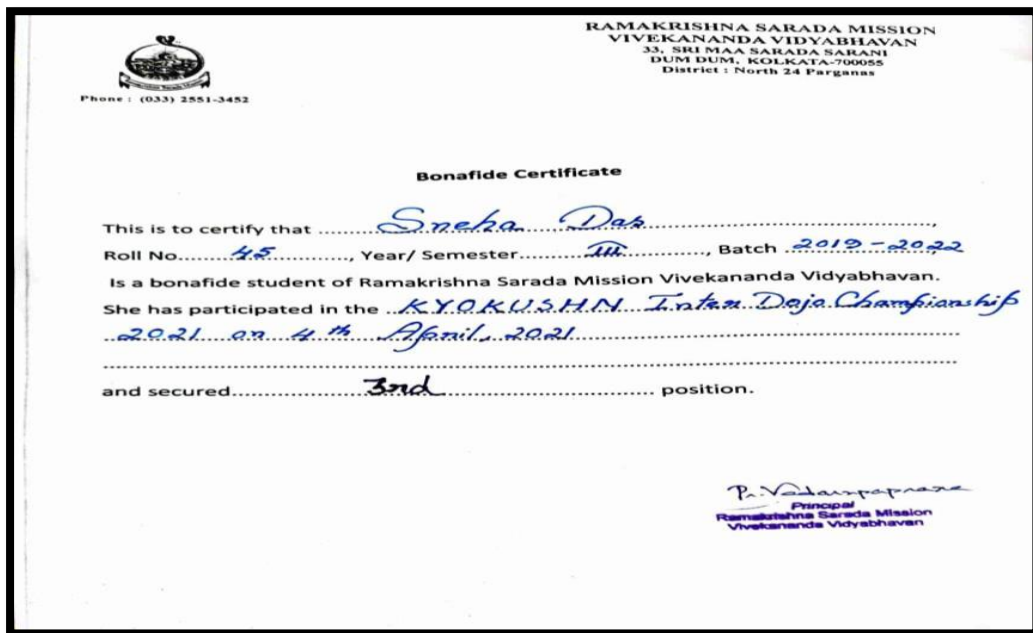 Ramakrishna Sarada Mission
Phone : (033) 2551-3452
RAMAKRISHNA SARADA MISSION
VIVEKANANDA VIDYABHAVAN
33, SRI MAA SARADA SARANI
DUM DUM, KOLKATA-700055
District : North 24 Parganas
Bonafide Certificate
This is to certify that Sneha Das,
Roll No. 45, Year/ Semester III, Batch 2019-2022,
Is a bonafide student of Ramakrishna Sarada Mission Vivekananda Vidyabhavan.
She has participated in the KYOKUSHN Inter Dojo Championship
2021 on 4th April, 2021
and secured 3rd position.
Principal
Ramakrishna Sarada Mission
Vivekananda Vidyabhavan